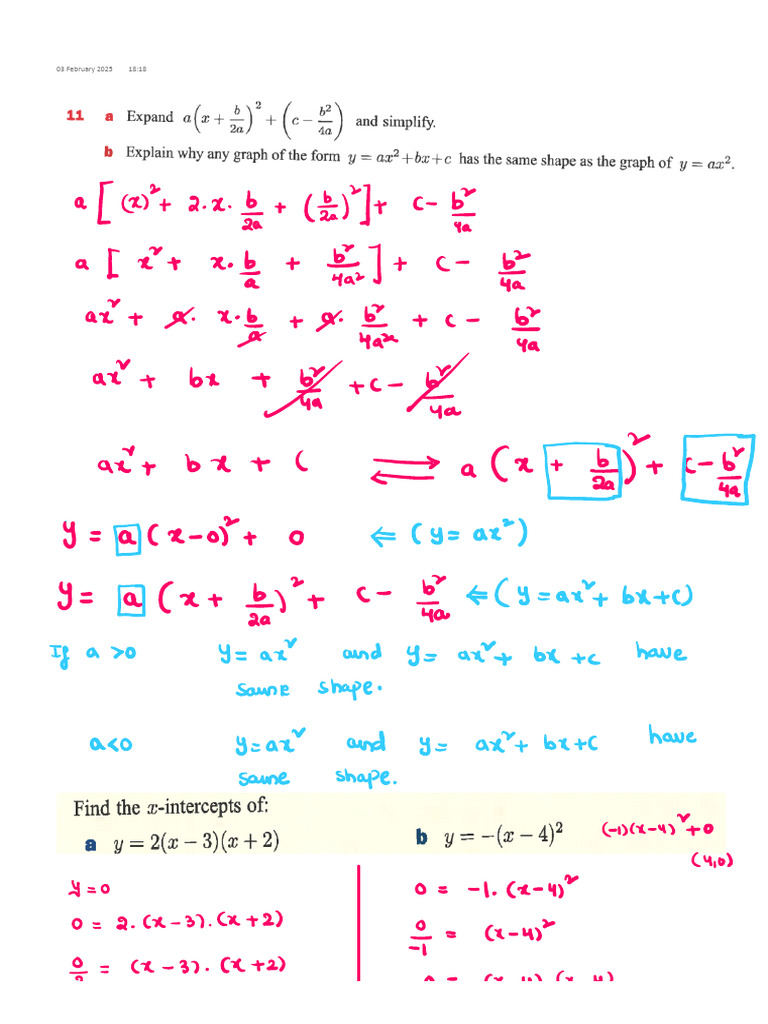 03 February 2025 18:18
11 a Expand a(x + b/2a)² + (c − b²/4a) and simplify.
b Explain why any graph of the form y = ax² + bx + c has the same shape as the graph of y = ax².
a [(x)² + 2.x. b/2a + (b/2a)²] + c − b²/4a
a [ x² + x. b/a + b²/4a² ] + c − b²/4a
ax² + a. x. b/a + a. b²/4a² + c − b²/4a
ax² + bx + b²/4a + c − b²/4a
ax² + bx + c ⇌ a (x + b/2a)² + c − b²/4a
y = a (x − 0)² + 0 ⇐ (y = ax²)
y = a (x + b/2a)² + c − b²/4a ⇐ (y = ax² + bx + c)
If a > 0 y = ax² and y = ax² + bx + c have
same shape.
a < 0 y = ax² and y = ax² + bx + c have
same shape.
Find the x-intercepts of:
a y = 2(x − 3)(x + 2) b y = −(x − 4)² (-1)(x-4)² + 0
(4,0)
y = 0
0 = 2.(x − 3).(x + 2)
0/2 = (x − 3).(x + 2)
0 = −1.(x − 4)²
0/−1 = (x − 4)²
0 = (x − 4) (x − 4)